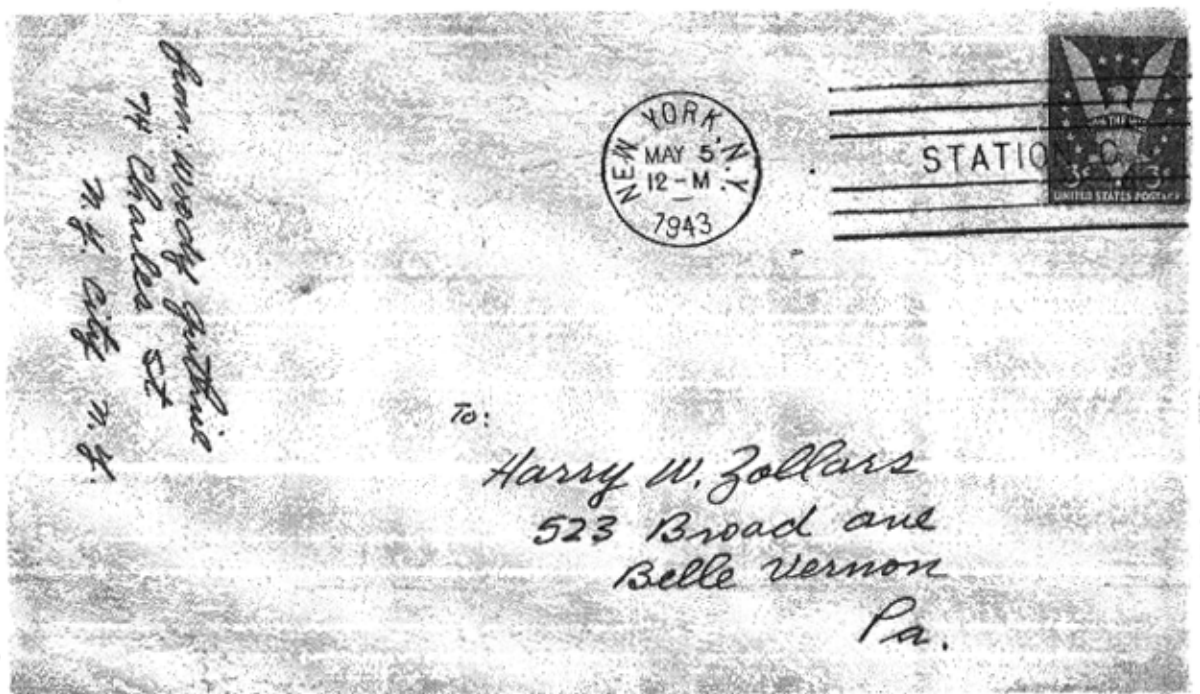 from: Woody Guthrie
74 Charles St
N.Y. City N.Y.
NEW YORK, N.Y.
MAY 5
12-M
1943
STATION C
3¢ 3¢
UNITED STATES POSTAGE
To:
Harry W. Zollars
523 Broad ave
Belle Vernon
Pa.